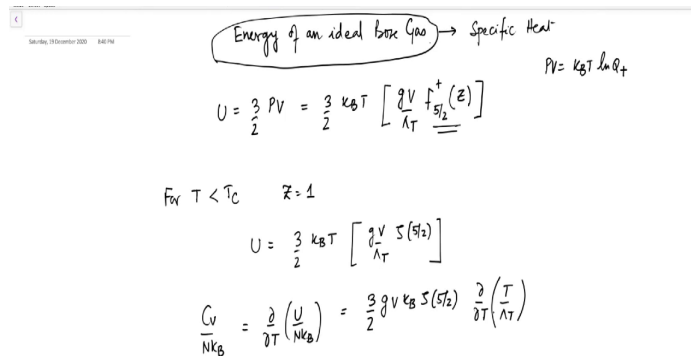 Saturday, 19 December 2020 8:40 PM
Energy of an ideal Bose Gas → Specific Heat
PV = K_BT ln Q_+
U = 3/2 PV = 3/2 K_BT [ gV/Λ_T f^+_{5/2}(z) ]
For T < T_C z = 1
U = 3/2 K_BT [ gV/Λ_T ζ(5/2) ]
C_V/NK_B = ∂/∂T (U/NK_B) = 3/2 g V K_B ζ(5/2) ∂/∂T (T/Λ_T)